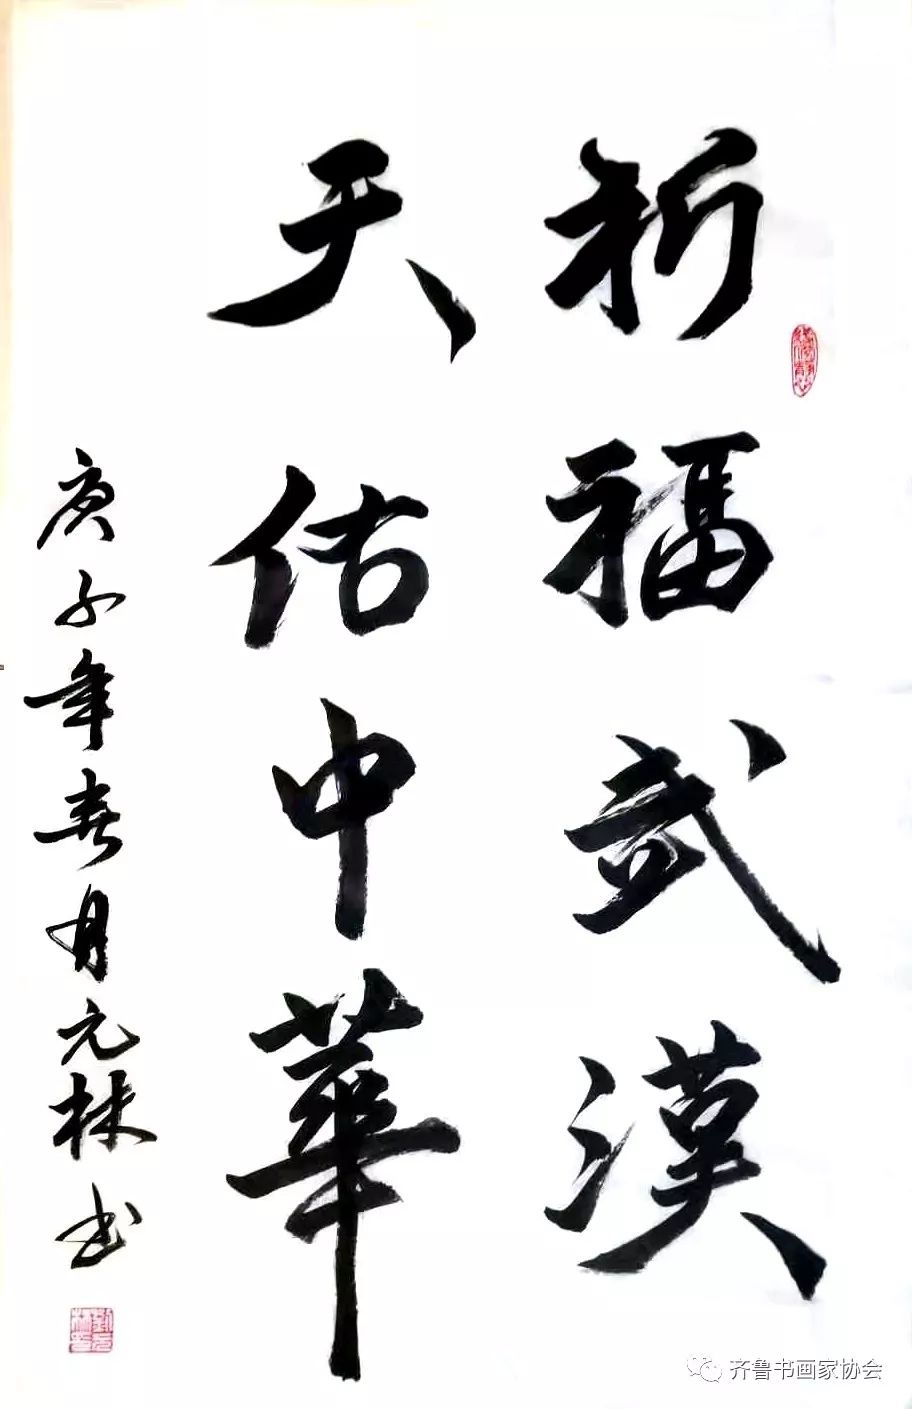 祈福武漢
天佑中華
庚子年春月元林书
齐鲁书画家协会